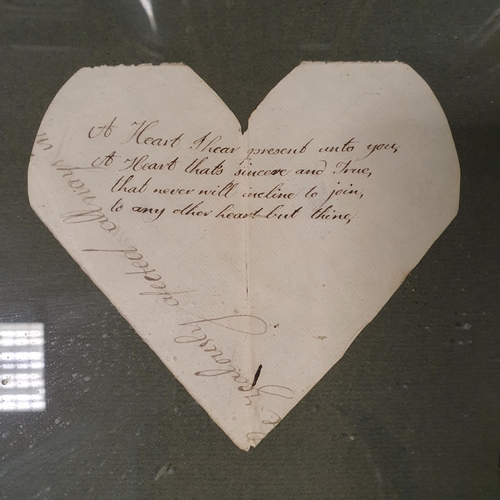 A Heart I hear present unto you,
A Heart thats sincere and True,
that never will incline to join,
to any other heart but thine,
zealously affected all ways in